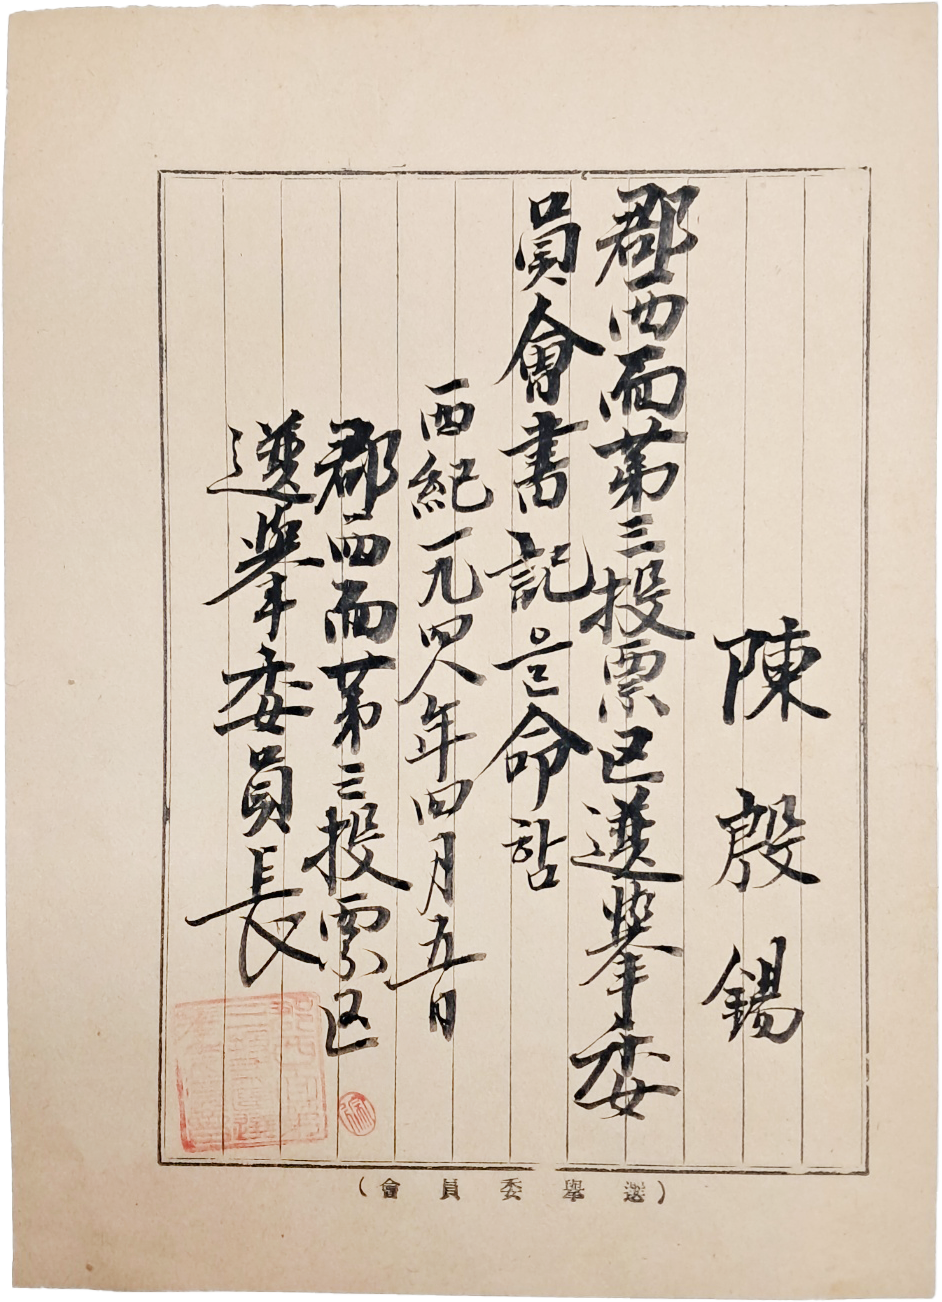 陳殷錫
郡西面第三投票區選擧委
員會書記을命함
西紀一九四八年四月五日
郡西面第三投票区
選擧委員長
(選擧委員會)